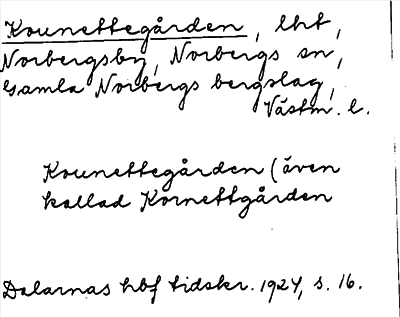 Kounettegården, lht,
Norbergsby, Norbergs sn,
Gamla Norbergs bergslag,
Västm. l.
Kounettegården (även
kallad Kornettgården
Dalarnas hbf tidskr. 1924, s. 16.